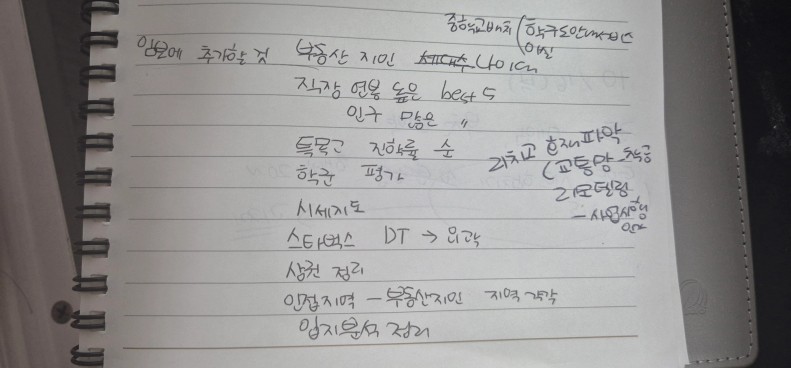 중학교배치 (학구도안내서비스
임장에 추가할 것 부동산 지인 세대수 나이대
직장 연봉 높은 best 5
인구 많은 〃
특목고 진학률 순
학군 평가
리치고 호재파악
(교통망 - 착공
리모델링
- 사업시행
시세지도
스타벅스 DT → 외곽
상권 정리
인접지역 - 부동산지인 지역
입지분석 정리